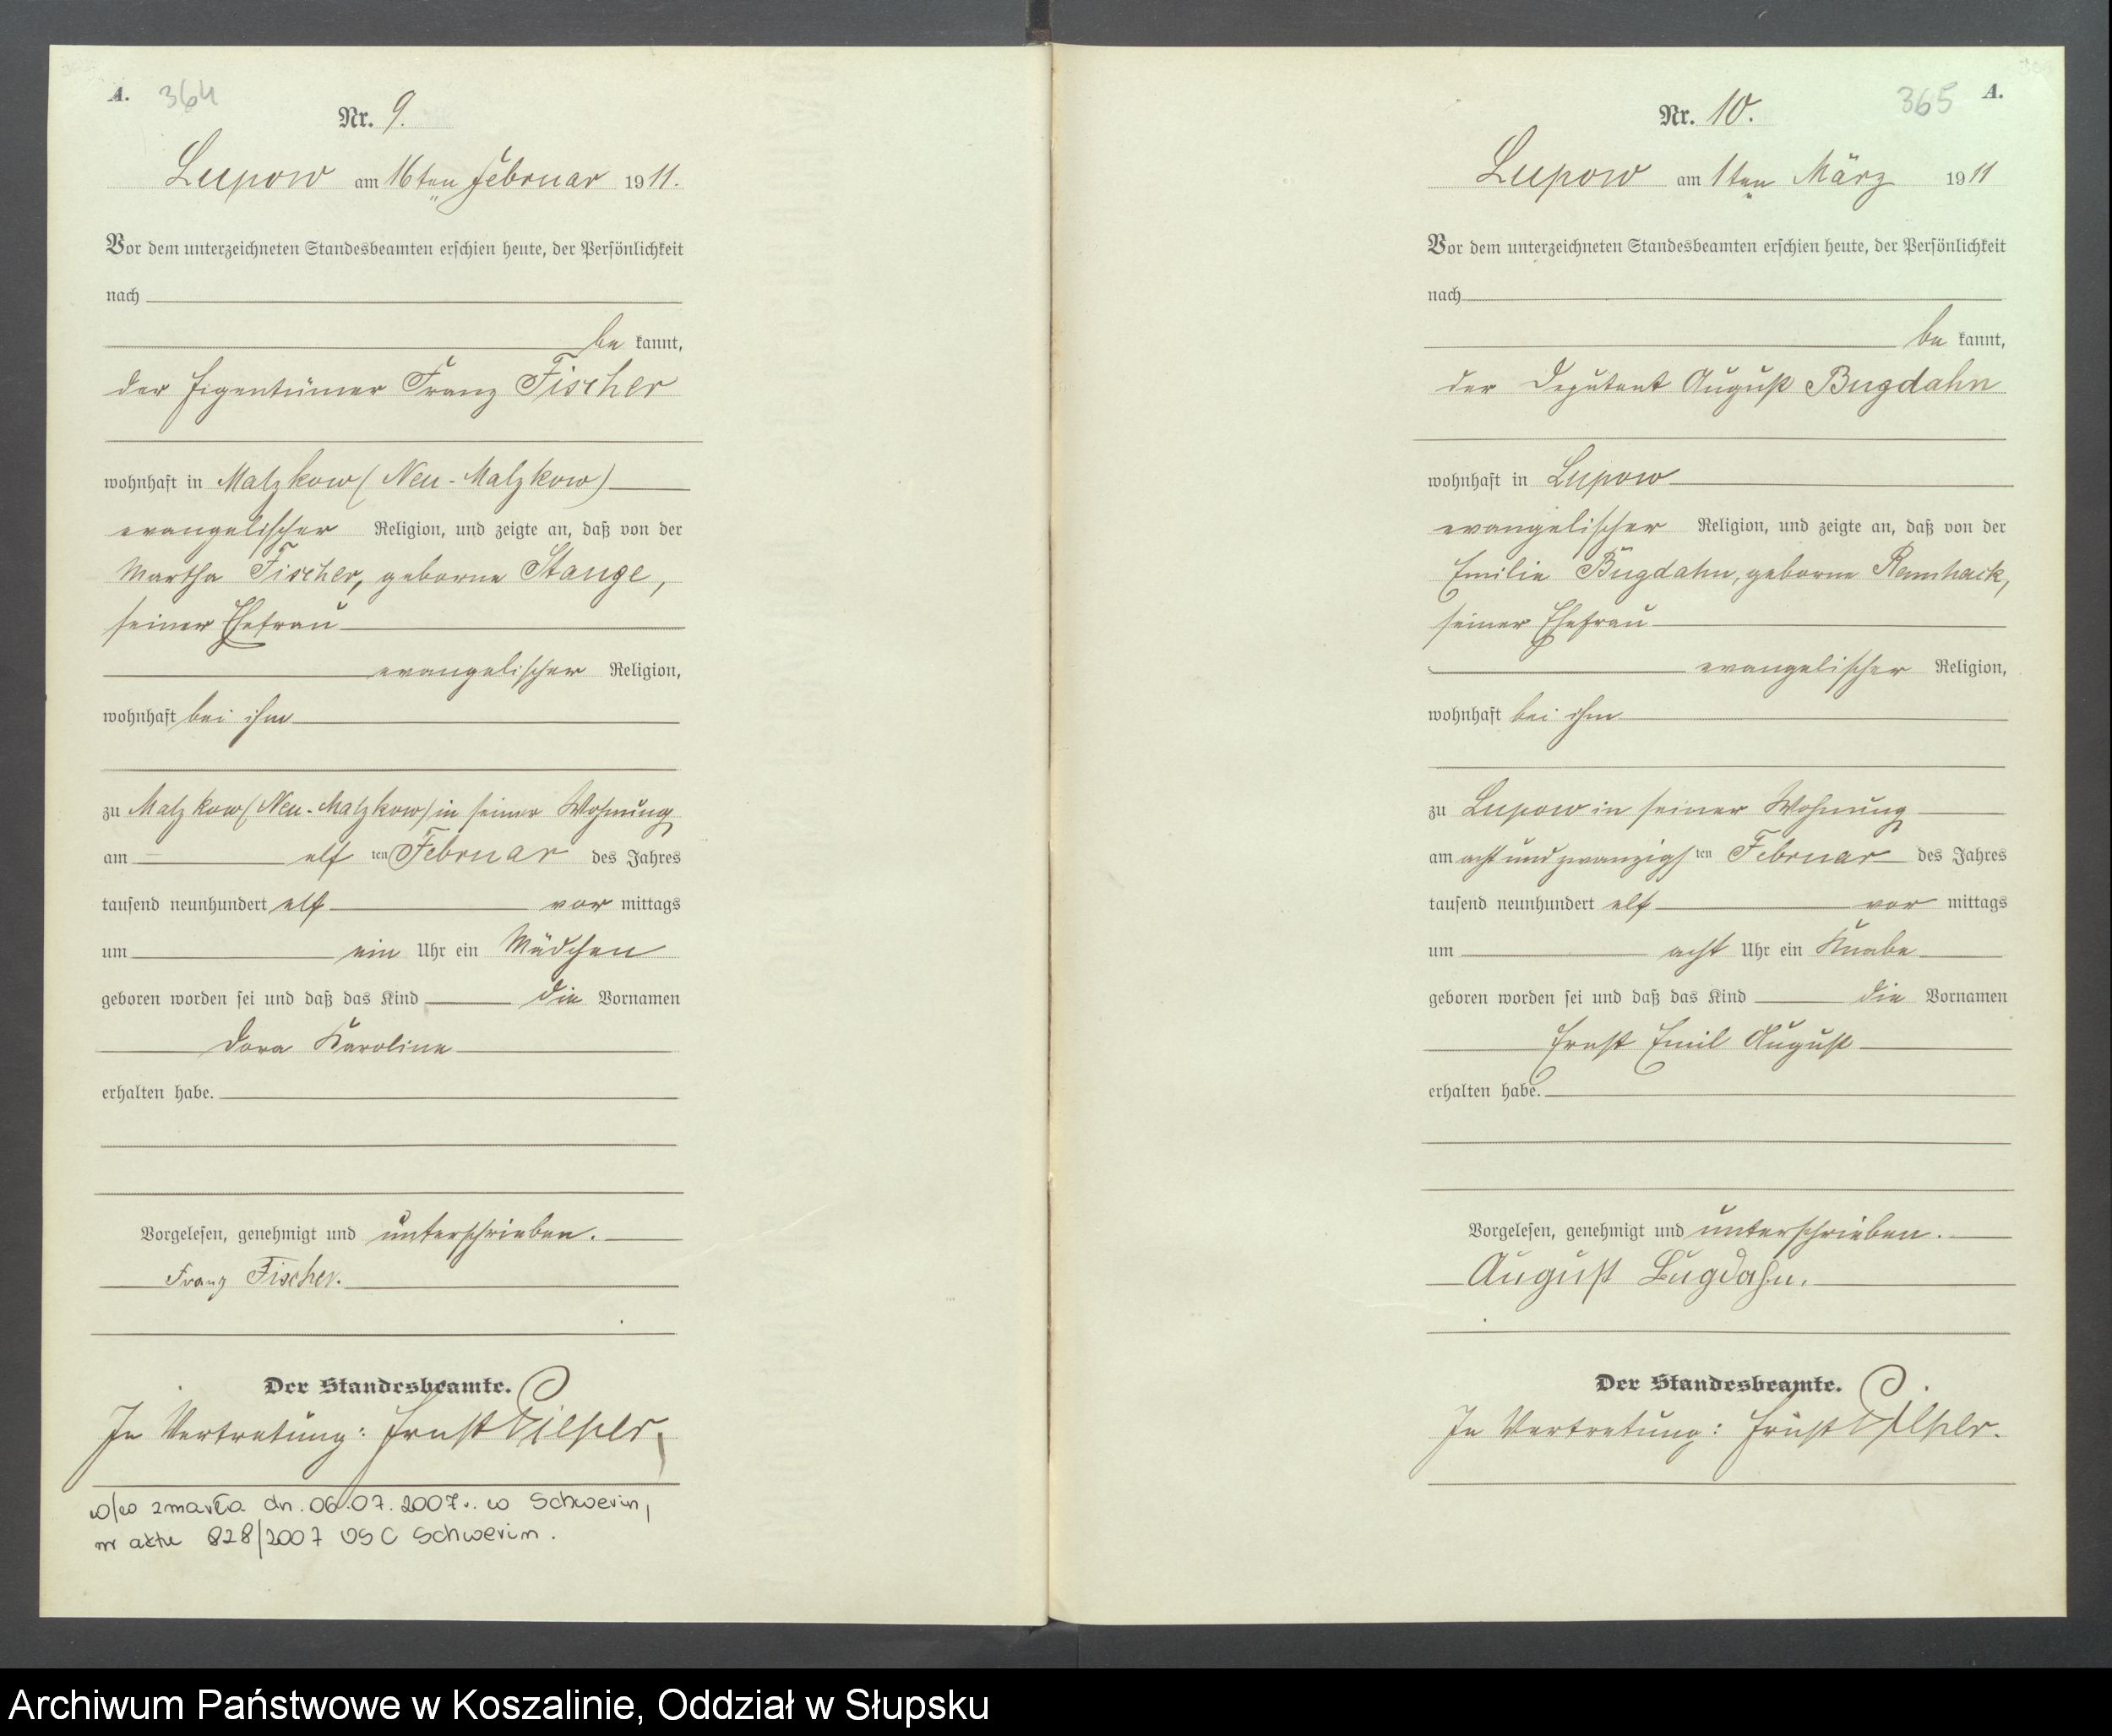 A. 364
Nr. 9.
Lupow am 16ten Februar 1911.
Vor dem unterzeichneten Standesbeamten erschien heute, der Persönlichkeit
nach
be kannt,
der Eigentümer Franz Fischer
wohnhaft in Malzkow (Neu-Malzkow)
evangelischer Religion, und zeigte an, daß von der
Martha Fischer, geborne Stange,
seiner Ehefrau
evangelischer Religion,
wohnhaft bei ihm
zu Malzkow (Neu-Malzkow) in seiner Wohnung
am elf ten Februar des Jahres
tausend neunhundert elf vor mittags
um ein Uhr ein Mädchen
geboren worden sei und daß das Kind die Vornamen
Dora Karoline
erhalten habe.
Vorgelesen, genehmigt und unterschrieben.
Franz Fischer.
Der Standesbeamte.
In Vertretung: Ernst
w/w zmarła dn. 06.07.2007r. w Schwerin,
nr aktu 828/2007 USC Schwerin.
365 A.
Nr. 10.
Lupow am 1ten März 1911
Vor dem unterzeichneten Standesbeamten erschien heute, der Persönlichkeit
nach
be kannt,
der Deputant August Bugdahn
wohnhaft in Lupow
evangelischer Religion, und zeigte an, daß von der
Emilie Bugdahn, geborne Rennhack,
seiner Ehefrau
evangelischer Religion,
wohnhaft bei ihm
zu Lupow in seiner Wohnung
am acht und zwanzigs ten Februar des Jahres
tausend neunhundert elf vor mittags
um acht Uhr ein Knabe
geboren worden sei und daß das Kind die Vornamen
Ernst Emil August
erhalten habe.
Vorgelesen, genehmigt und unterschrieben.
August Bugdahn.
Der Standesbeamte.
In Vertretung: Ernst
Archiwum Państwowe w Koszalinie, Oddział w Słupsku